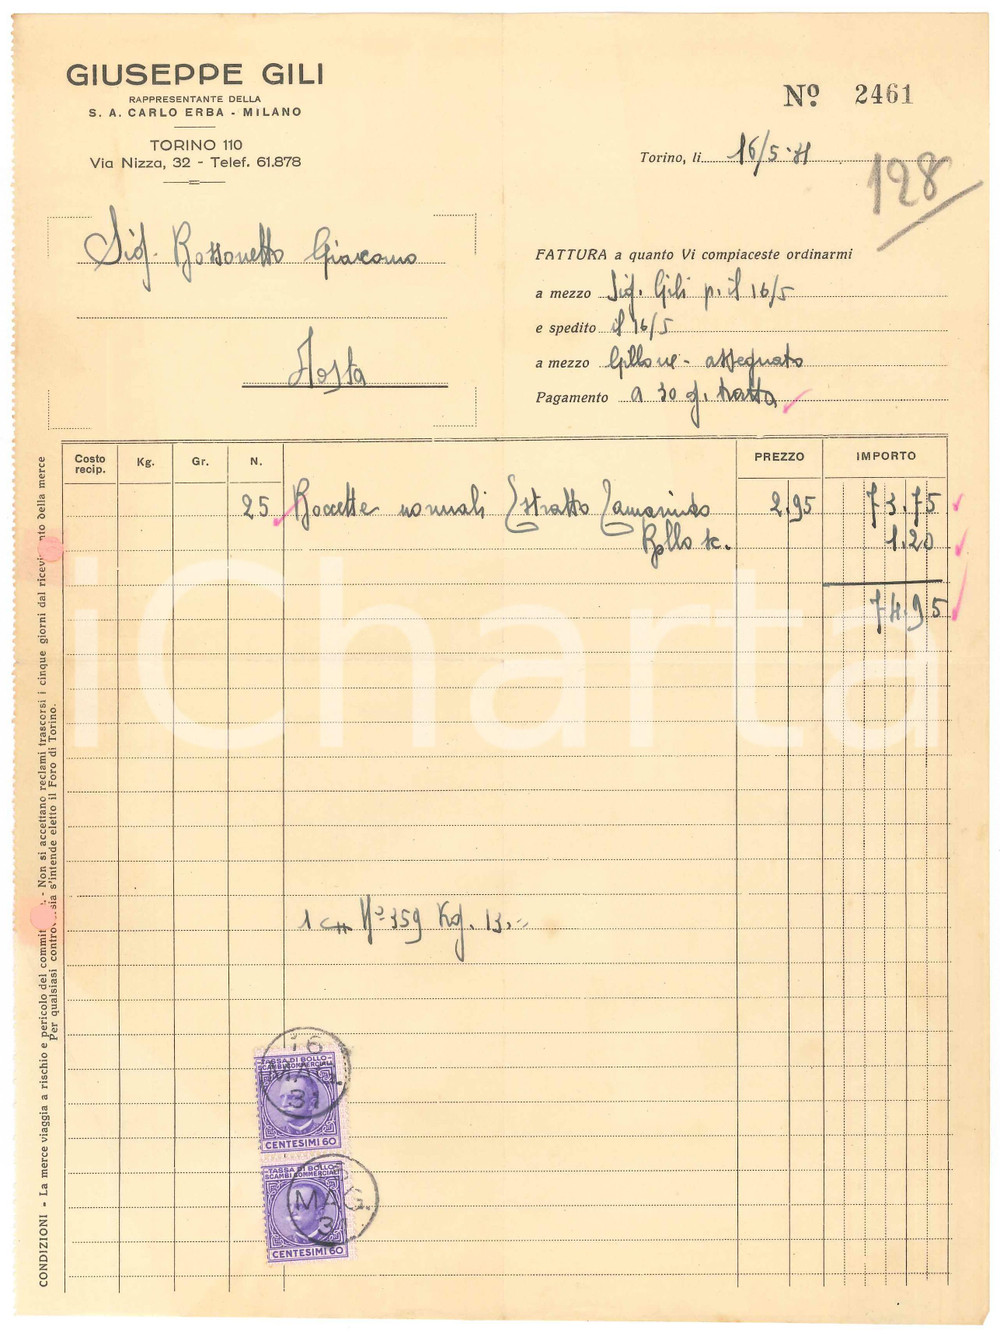 GIUSEPPE GILI
RAPPRESENTANTE DELLA
S. A. CARLO ERBA - MILANO
TORINO 110
Via Nizza, 32 - Telef. 61.878
Nº 2461
Torino, li 16/5-31
128
Sig. Bossonetto Giacomo
Aosta
FATTURA a quanto Vi compiaceste ordinarmi
a mezzo Sig. Gili p. il 16/5
e spedito il 16/5
a mezzo Gillone - assegnato
Pagamento a 30 g. tratta
Costo recip. Kg. Gr. N. PREZZO IMPORTO
25 Boccette normali Estratto Tamarindo 2,95 73.75
Bollo 1.20
74.95
1 Nº 359 Kg. 13,-
16
MAG.
31
TASSA DI BOLLO
SCAMBI COMMERCIALI
CENTESIMI 60
MAG.
31
TASSA DI BOLLO
SCAMBI COMMERCIALI
CENTESIMI 60
CONDIZIONI - La merce viaggia a rischio e pericolo del commit - Non si accettano reclami trascorsi i cinque giorni dal ricevi nto della merce
Per qualsiasi contro sia s'intende eletto il Foro di Torino.
iCharta